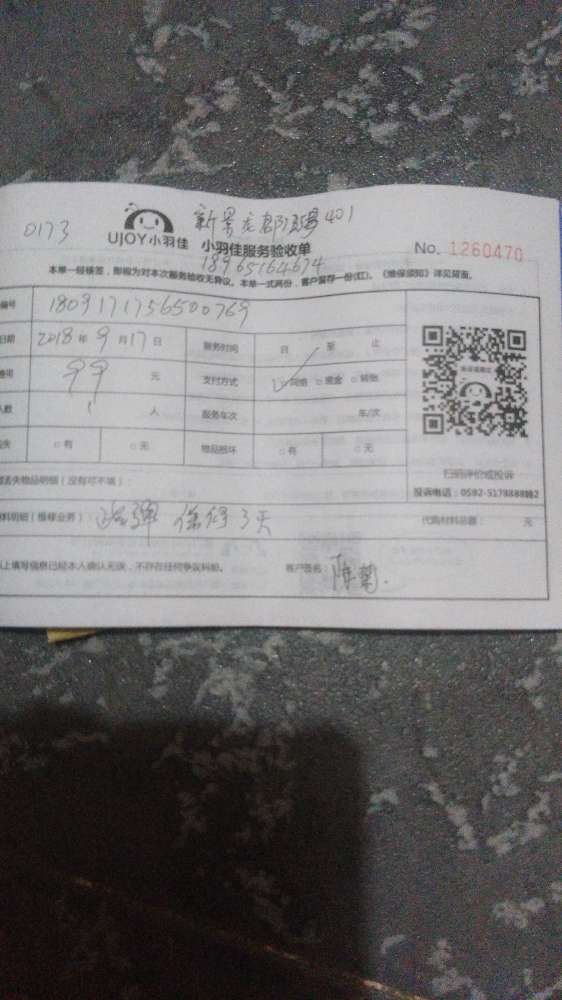 0173
UJOY小羽佳
401
小羽佳服务验收单
No. 1260470
18965164674
本单一经接签，即视为对本次服务验收无异议。本单一式两份，客户留存一份(红)。《维保须知》详见背面。
编号 1809171756500769
日期 2018 年 9 月 17 日 服务时间 日 至 止
99 元 支付方式 ☑网络 □现金 □转账
人数 1 人 服务车次 车/次
□有 □无 物品损坏 □有 □无
扫码评价或投诉
丢失物品明细（没有可不填）：
投诉电话：0592-5178888转2
料明细（维修业务） 3天
代购材料总额： 元
上填写信息已经本人确认无误，不存在任何争议纠纷。 客户签名：